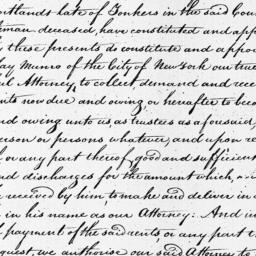 ortlands late of Yonkers in the said Cou
tman deceased, have constituted and app
y these presents do constitute and appoi
ay Munro of the City of New York our true
ul Attorney, to collect, demand and rece
nts now due and owing or hereafter to beco
nd owing unto us, as trustees as aforesaid,
erson or persons whatever, and upon re
t or any part thereof, good and sufficient
and discharges for the amount which,
e received by him to make and deliver in o
in his name as our Attorney: And in
f payment of the said rents, or any part t
quest, we authorise our said Attorney to